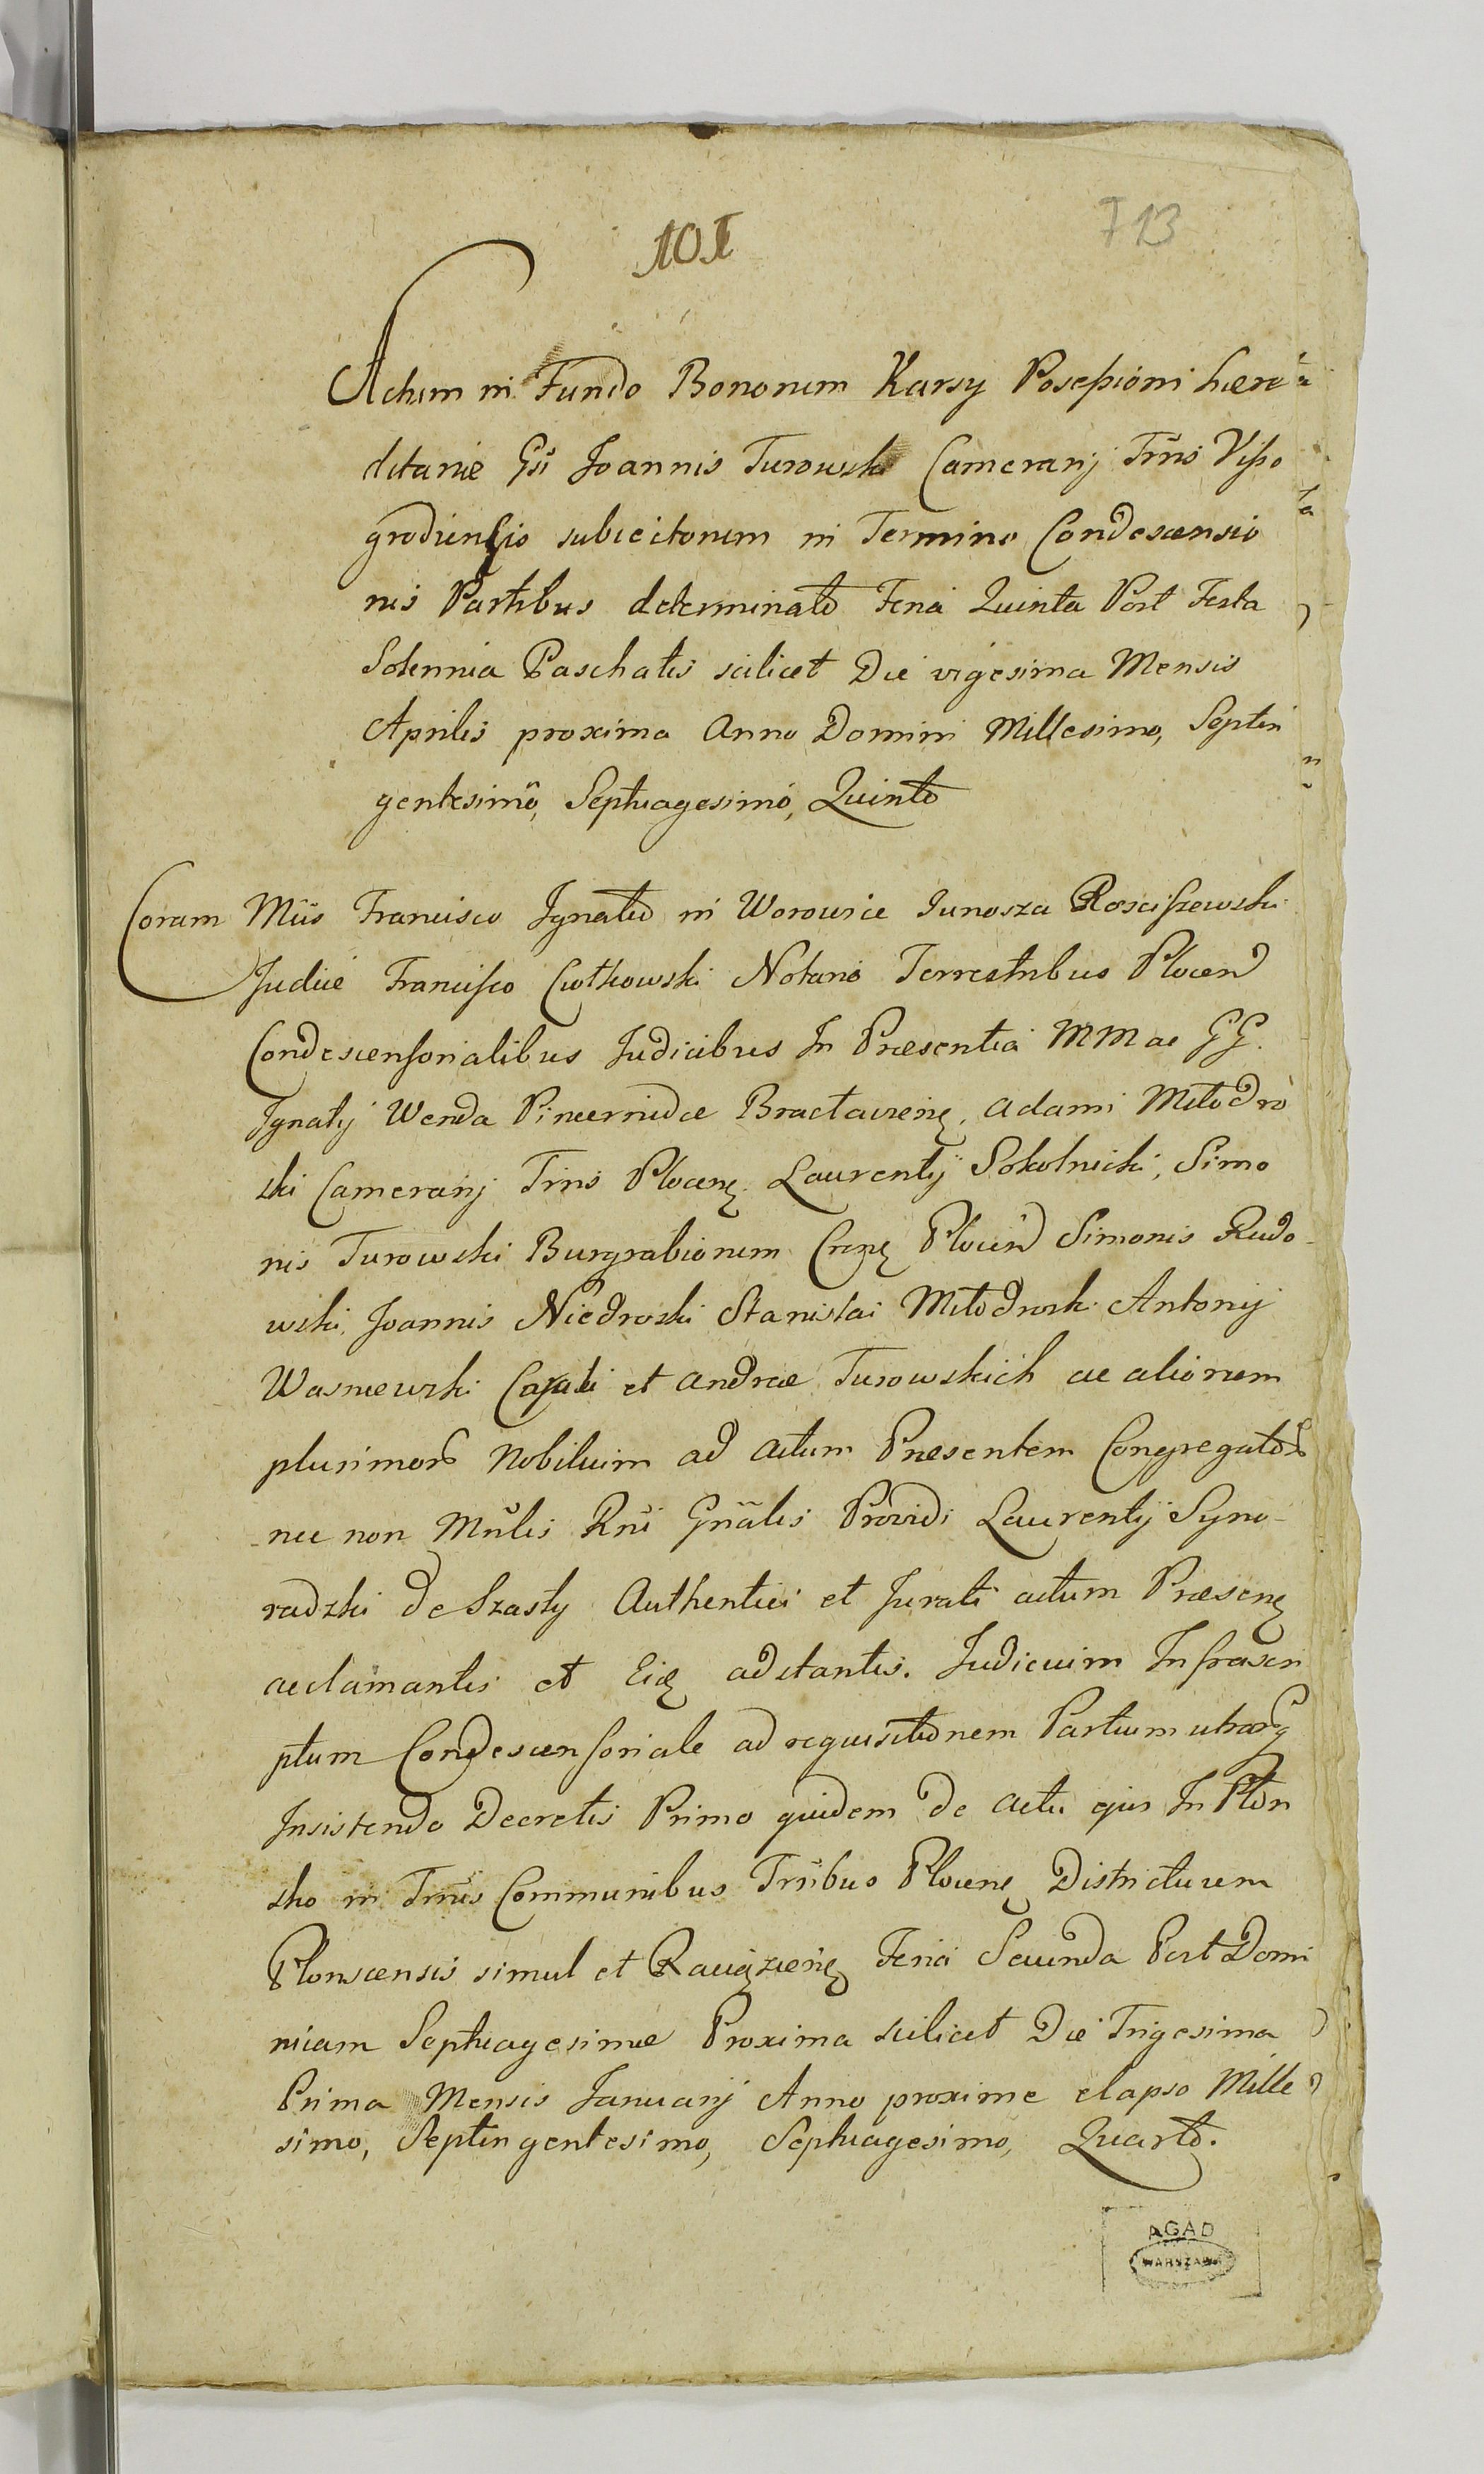 101
713
Actum in Fundo Bonorum Karsy Possessioni hære
ditariæ Gsi Joannis Turowski Cameranij Trris Visso
grodiensis subiectorum in Termino Condescensio
nis Partibus determinato Feria Quinta Post Festa
Solennia Paschatis scilicet Die vigesima Mensis
Aprilis proxima Anno Domini Millesimo, Septin
gentesimo, Septuagesimo, Quinto
Coram Mcis Francisco Ignatio in Worowice Junosza Rosciszewski
Judice Francisco Ciołkowski Notario Terrestribus Plocen
Condescensorialibus Judicibus In Præsentia MM ac GG.
Ignatij Wenda Pincernidæ Bractavien, Adami Młodro
ski Cameranij Trris Plocen Laurentij Sokolnicki, Simo
nis Turowski Burgrabiorum Cren Plocen Simonis Rudo
wski, Joannis Niedroski Stanislai Młodroski Antonij
Wasniewski et Andreæ Turowskich ac aliorum
plurimor Nobilium ad actum Præsentem Congregator
nec non Mnlis Rni Gnalis Providi Laurentij Syno-
radzki de Szasty Authentici et Jurati actum Præsen
acclamantis et Eid adstantis. Judicium Infrascri
ptum Condescensoriale ad requisitionem Partium utrarq
Insistendo Decretis Primo quidem de actu ejus In Płon
sko in Trris Communibus Trribus Plocen Districtuum
Plonscensis simul et Raciązen Feria Secunda Post Domi
nicam Septuagesimæ Proxima scilicet Die Trigesima
Prima Mensis Januarij Anno proxime elapso Mille
simo, Septingentesimo, Septuagesimo, Quarto.
AGAD
WARSZAWA